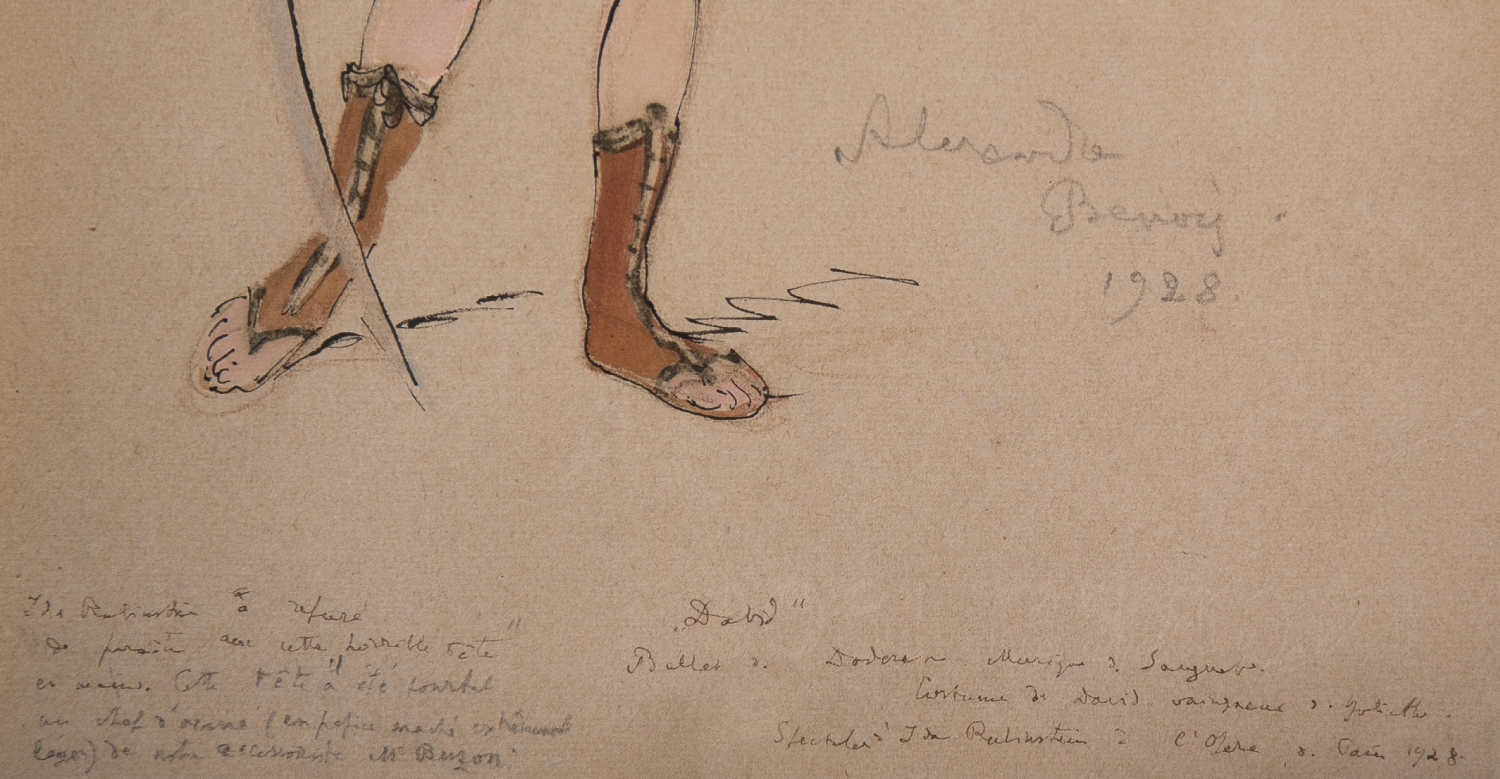 Alexandre
Benois.
1928.
Ida Rubinstein a refusé
de paraître avec cette horrible tête"
en main. Cette tête a été pourtant
un chef d'œuvre (en papier maché extrêmement
léger) de notre accessoiriste Mr Buzon
„David"
Ballet d. Musique d. Sauguet.
Costume de David vainqueur d. Goliath.
Spectacles d'Ida Rubinstein à l'Opéra d. Paris 1928.